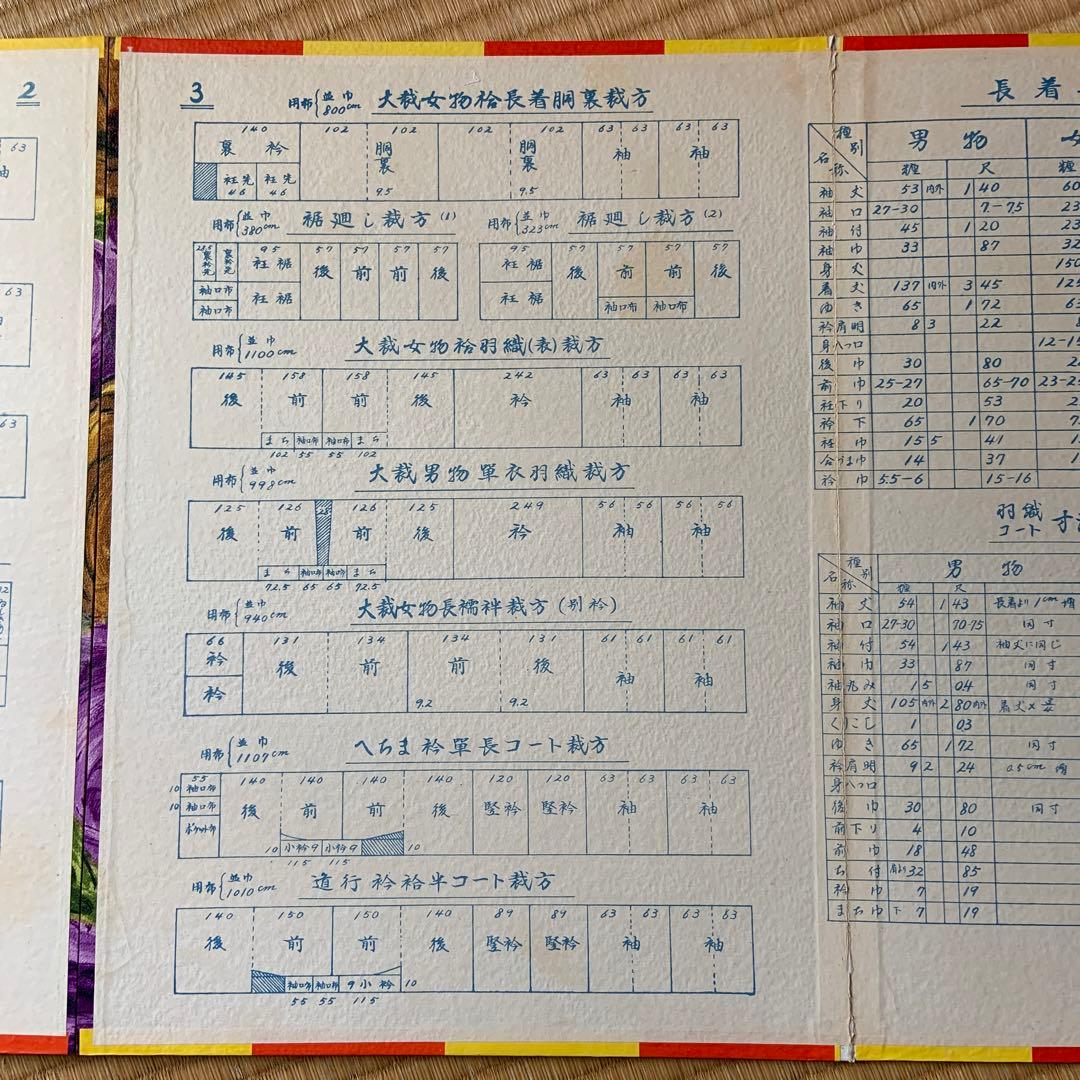 2
63
63
63
3
用布{並巾 800cm 大裁女物袷長着胴裏裁方
140 102 102 102 102 63 63 63 63
裏衿 胴裏 胴裏 袖 袖
衽先 衽先
46 46 9.5 9.5
用布{並巾 380cm 裾廻し裁方(1)
23.5 95 57 57 57 57
裏衿先 裏衿先 衽裾 後 前 前 後
袖口布 衽裾
袖口布
用布{並巾 323cm 裾廻し裁方(2)
95 57 57 57 57
衽裾 後 前 前 後
衽裾 袖口布 袖口布
用布{並巾 1100cm 大裁女物袷羽織(表)裁方
145 158 158 145 242 63 63 63 63
後 前 前 後 衿 袖 袖
まち 袖口布 袖口布 まち
102 55 55 102
用布{並巾 998cm 大裁男物單衣羽織裁方
125 126 28 126 125 249 56 56 56 56
後 前 前 後 衿 袖 袖
まち 袖口布 袖口布 まち
72.5 65 65 72.5
用布{並巾 940cm 大裁女物長襦袢裁方(別衿)
66 131 134 134 131 61 61 61 61
衿 後 前 前 後 袖 袖
衿
9.2 9.2
用布{並巾 1107cm へちま衿單長コート裁方
55 140 140 140 140 120 120 63 63 63 63
10 袖口布 後 前 前 後 竪衿 竪衿 袖 袖
10 袖口布
ポケット布
10 小衿9 小衿9 10
115 115
用布{並巾 1010cm 道行衿袷半コート裁方
140 150 150 140 89 89 63 63 63 63
後 前 前 後 竪衿 竪衿 袖 袖
袖口布 袖口布 9小衿 10
55 55 115
長着
種別 名称 男物
糎 尺 糎
袖丈 53 内外 1 40 60
袖口 27-30 7.-75 23
袖付 45 1 20 23
袖巾 33 87 32
身丈 150
着丈 137 内外 3 45 125
ゆき 65 1 72 65
衿肩明 8 3 22 8
身八つ口 12-15
後巾 30 80
前巾 25-27 65-70 23-25
衽下り 20 53
衿下 65 1 70 7
衽巾 15 5 41 1
合づま巾 14 37 1
衿巾 5.5-6 15-16
羽織 コート 寸
種別 名称 男物
糎 尺
袖丈 54 1 43 長着より1cm増
袖口 27-30 70-75 同寸
袖付 54 1 43 袖丈に同じ
袖巾 33 87 同寸
袖丸み 1 5 04 同寸
身丈 105 内外 2 80 内外
くりこし 1 03
ゆき 65 1 72 同寸
衿肩明 9 2 24 0.5cm増
身八つ口
後巾 30 80 同寸
前下り 4 10
前巾 18 48
ち付 肩より32 85
衿巾 7 19
まち巾 下7 19